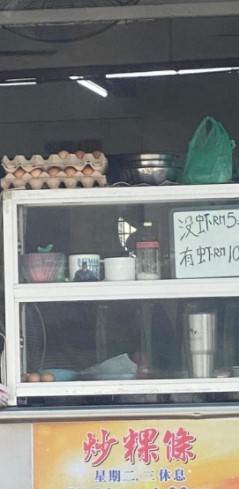 没虾RM5
有虾RM10
炒粿條
星期二.三休息